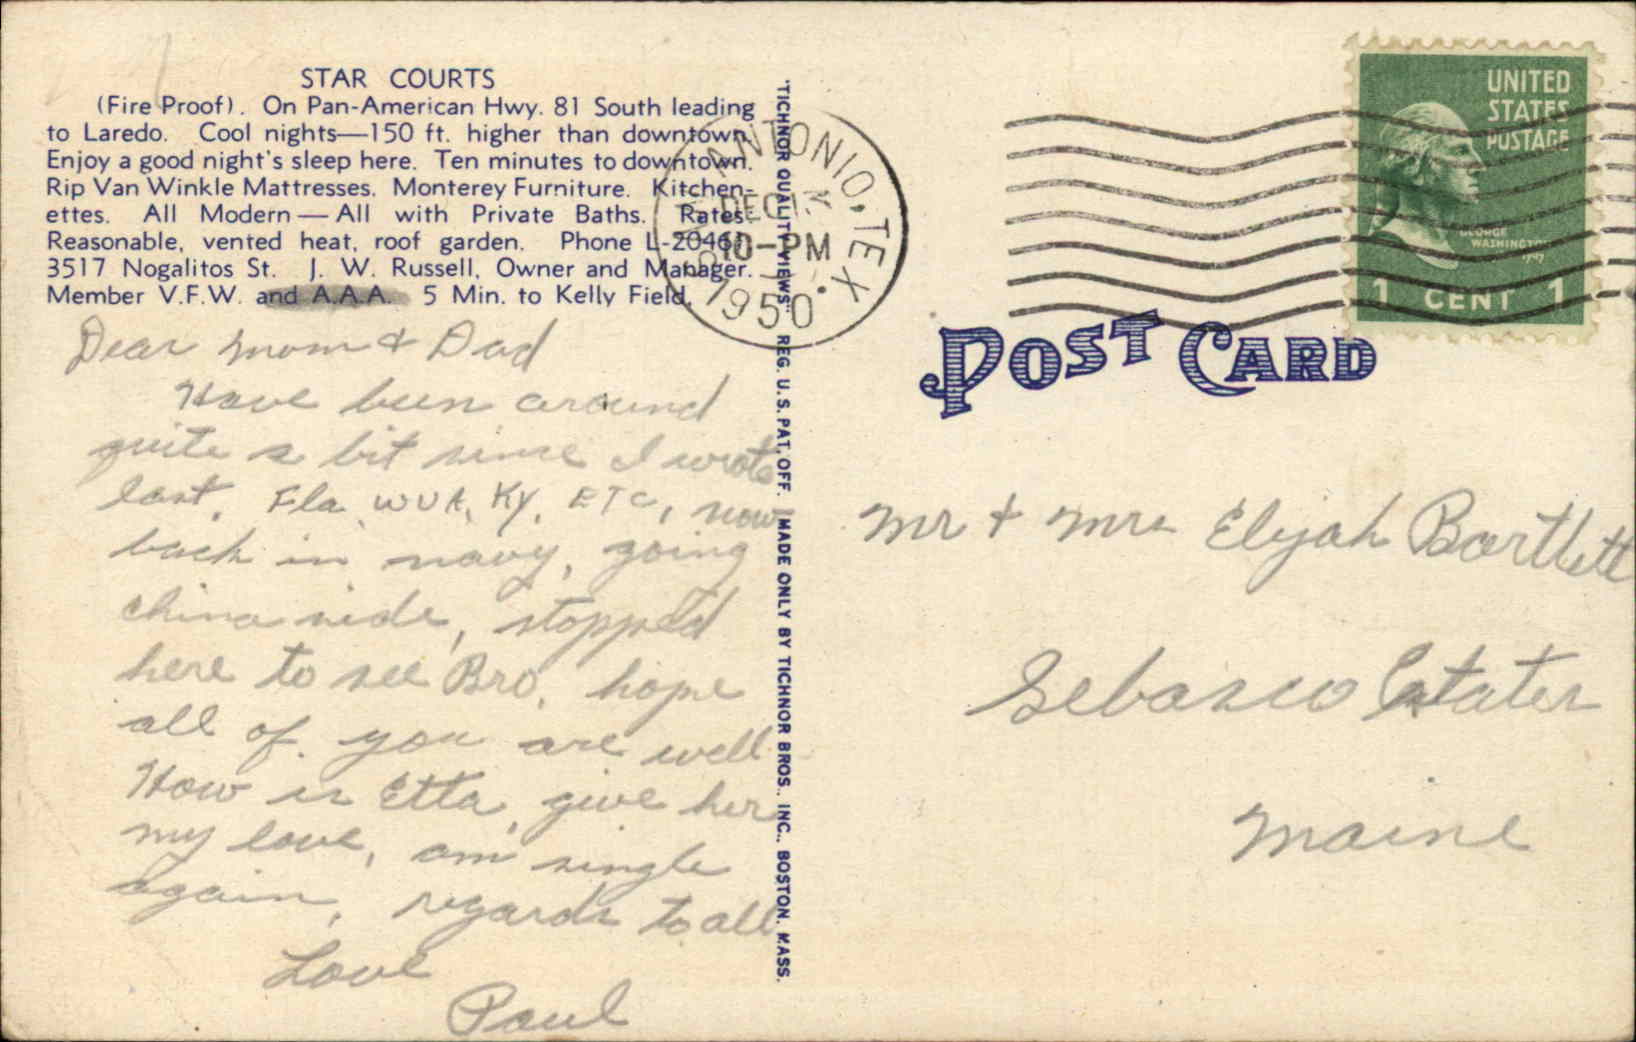 STAR COURTS
(Fire Proof). On Pan-American Hwy. 81 South leading
to Laredo. Cool nights—150 ft. higher than downtown.
Enjoy a good night's sleep here. Ten minutes to downtown.
Rip Van Winkle Mattresses. Monterey Furniture. Kitchen-
ettes. All Modern — All with Private Baths. Rates
Reasonable, vented heat, roof garden. Phone L-20461
3517 Nogalitos St. J. W. Russell, Owner and Manager.
Member V.F.W. and A.A.A. 5 Min. to Kelly Field.
Dear Mom & Dad
Have been around
quite a bit since I wrote
last, Fla, WVA, KY, ETC, now
back in navy, going
china side, stopped
here to see Bro, hope
all of you are well
How is Etta, give her
my love, am single
again, regards to all
Love
Paul
"TICHNOR QUALITY VIEWS" REG. U.S. PAT. OFF. MADE ONLY BY TICHNOR BROS., INC., BOSTON, MASS.
ANTONIO, TEX.
DEC
10-PM
1950
UNITED
STATES
POSTAGE
GEORGE
WASHINGTON
1 CENT 1
POST CARD
Mr & Mrs Elijah Bartlett
Sebasco Estates
Maine